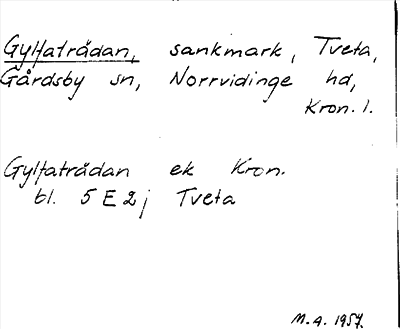 Gyltaträdan, sankmark, Tveta,
Gårdsby sn, Norrvidinge hd,
Kron. l.
Gyltaträdan ek Kron.
bl. 5 E 2 j Tveta
M.A. 1957.